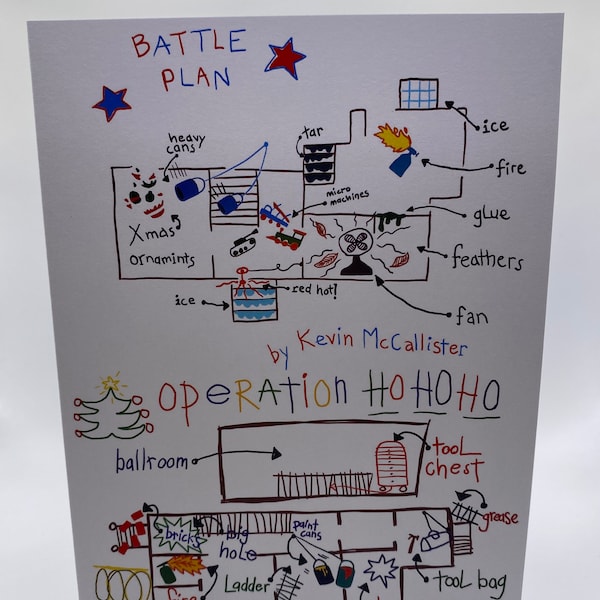 BATTLE
PLAN
heavy
cans
tar
ice
fire
micro
machines
Xmas
ornamints
glue
feathers
ice
red hot!
fan
by Kevin McCallister
OPERATION HO HO HO
ballroom
tool
chest
brick
big
hole
paint
cans
grease
Ladder
tool bag
fire